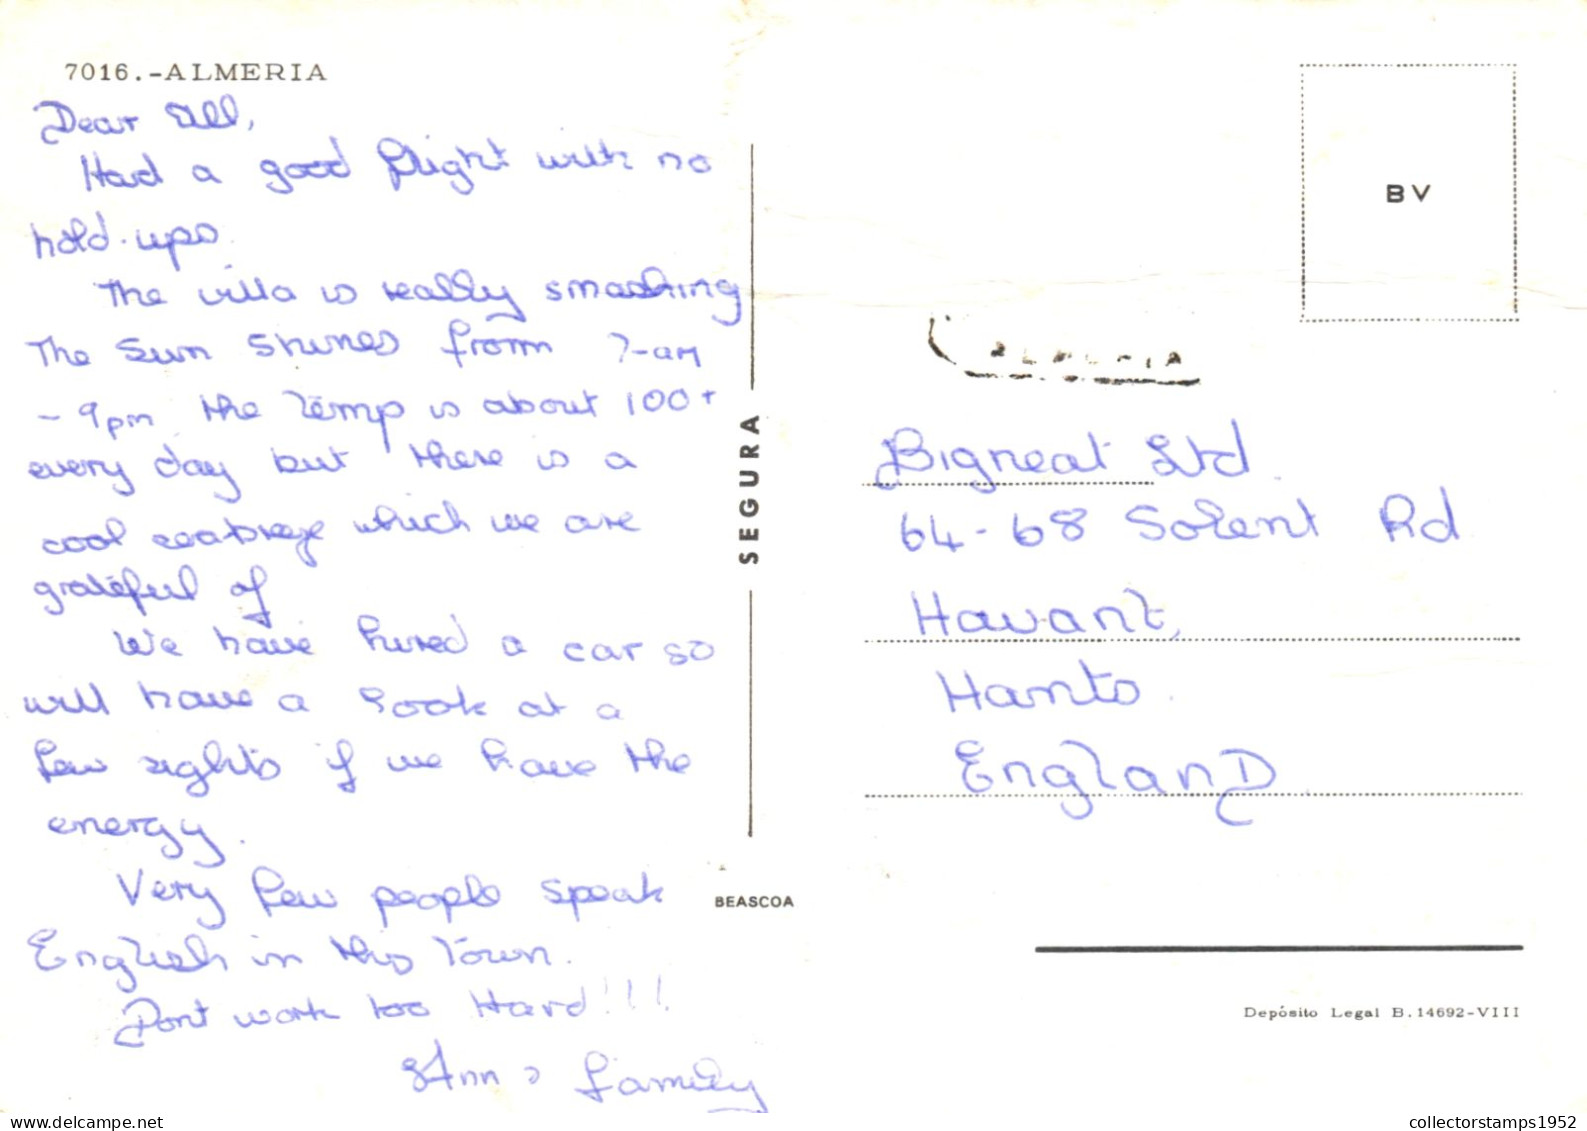 7016.-ALMERIA
Dear All,
Had a good flight with no
hold-ups.
The villa is really smashing
The Sun shines from 7-am
- 9pm the temp is about 100+
every day but there is a
cool seabreeze which we are
grateful of
We have hired a car so
will have a look at a
few sights if we have the
energy.
Very few people speak
English in this Town.
Dont work too Hard!!!
Ann & family
SEGURA
BEASCOA
BV
ALMERIA
Bigneat Ltd.
64-68 Solent Rd
Havant,
Hants.
England
Depósito Legal B.14692-VIII
collectorstamps1952